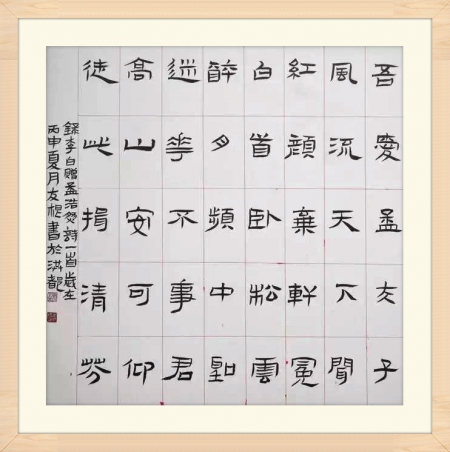 吾愛孟夫子
風流天下聞
紅顏棄軒冕
白首臥松雲
醉月頻中聖
迷花不事君
高山安可仰
徒此揖清芬
錄李白贈孟浩然詩一首歲在
丙申夏月友根書於洪都